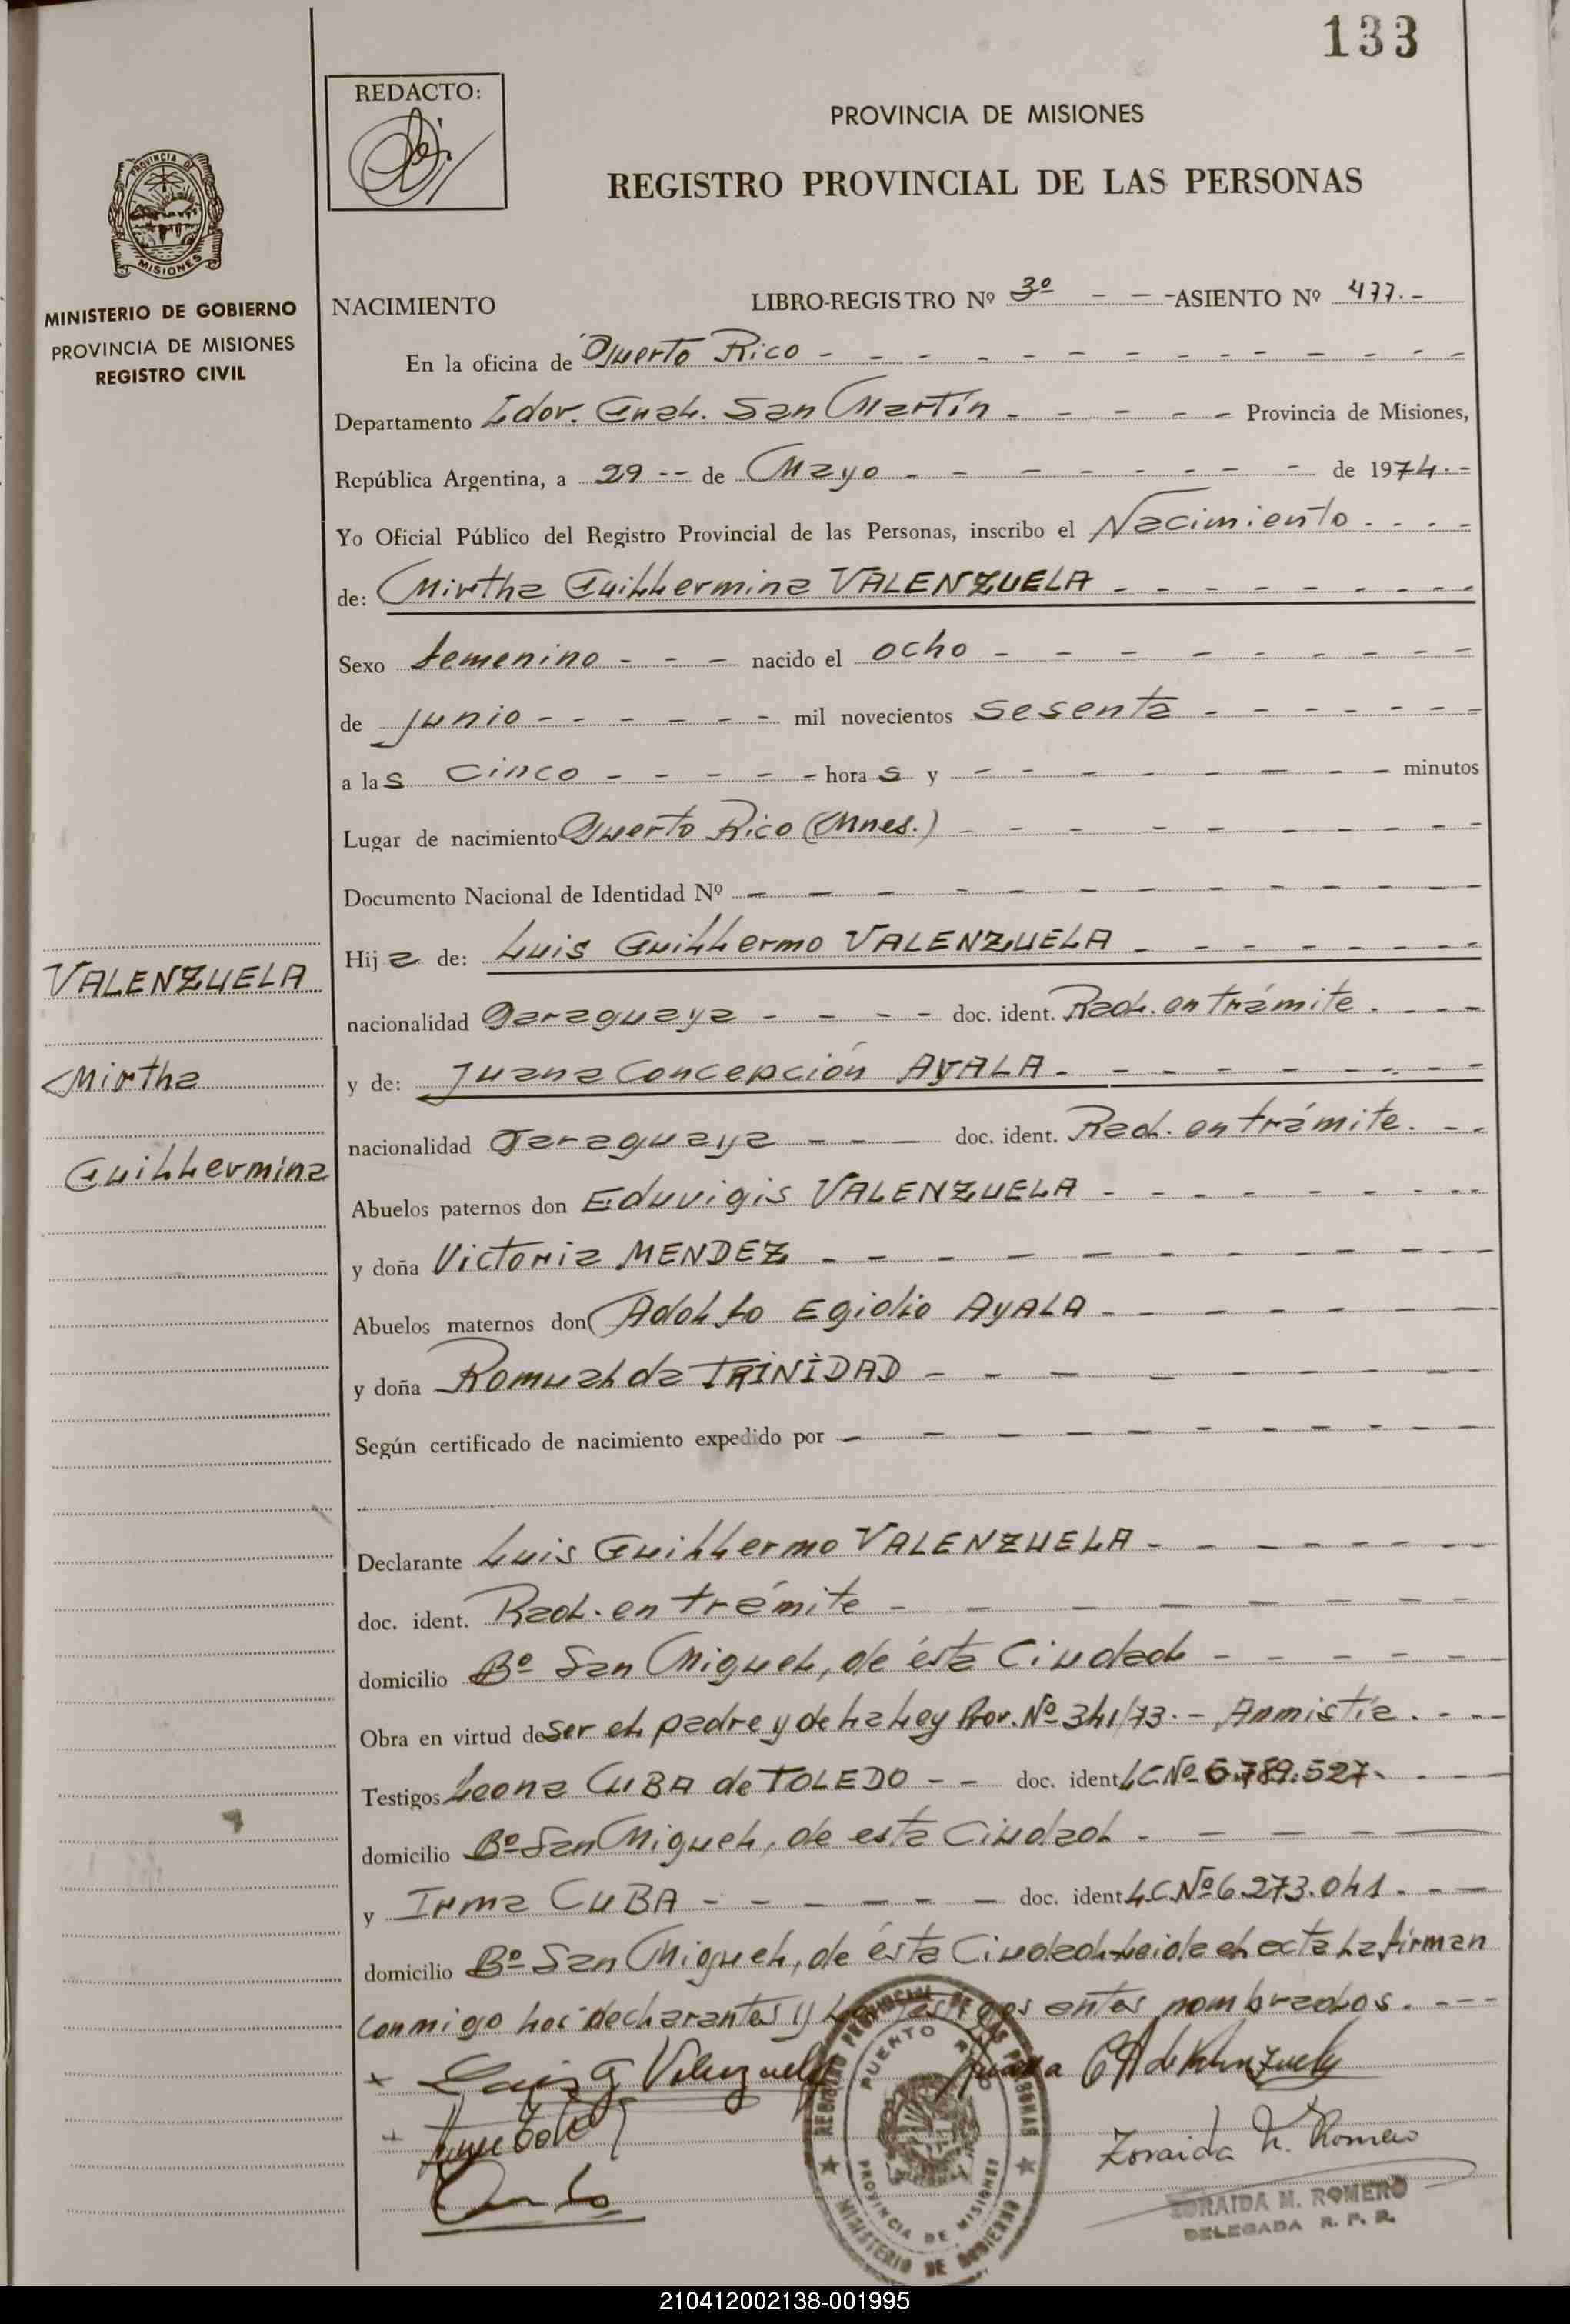 133
REDACTO:
PROVINCIA DE MISIONES
REGISTRO PROVINCIAL DE LAS PERSONAS
PROVINCIA DE
MISIONES
MINISTERIO DE GOBIERNO
PROVINCIA DE MISIONES
REGISTRO CIVIL
NACIMIENTO LIBRO-REGISTRO Nº 3º - - - ASIENTO Nº 477.-
En la oficina de Puerto Rico - - - - - - - - - - - -
Departamento Ldor. Gral. San Martín - - - - - Provincia de Misiones,
República Argentina, a 29 -- de Mayo - - - - - - - - de 1974.-
Yo Oficial Público del Registro Provincial de las Personas, inscribo el Nacimiento - - - -
de: Mirtha Guillermina VALENZUELA - - - - - - - - -
Sexo femenino - - - nacido el ocho - - - - - - - - -
de junio - - - - - - mil novecientos sesenta - - - - - - -
a las cinco - - - - - horas y - - - - - - - - - minutos
Lugar de nacimiento Puerto Rico (Mnes.) - - - - - - - - -
Documento Nacional de Identidad Nº - - - - - - - - - - -
Hija de: Luis Guillermo VALENZUELA - - - - - - - -
nacionalidad Paraguaya - - - - doc. ident. Rad. en trámite. - - -
y de: Juana Concepción AYALA - - - - - - - - -
nacionalidad Paraguaya - - - doc. ident. Rad. en trámite. - -
Abuelos paternos don Eduvigis VALENZUELA - - - - - - - - -
y doña Victoria MENDEZ - - - - - - - - - -
Abuelos maternos don Adolfo Egidio AYALA - - - - - - -
y doña Romualda TRINIDAD - - - - - - -
Según certificado de nacimiento expedido por - - - - - - - - -
Declarante Luis Guillermo VALENZUELA - - - - - - - -
doc. ident. Rad. en trámite - - - - - - - -
domicilio Bº San Miguel, de ésta Ciudad - - - - - -
Obra en virtud de ser el padre y de la ley Prov. Nº 341/73.- Anmistía. - - -
Testigos Leona CUBA de TOLEDO - - doc. ident. L.C. Nº 6.789.527. - - -
domicilio Bº San Miguel, de esta Ciudad - - - - -
y Irma CUBA - - - - - - doc. ident. L.C. Nº 6.273.041. - - -
domicilio Bº San Miguel, de ésta Ciudad.-Leida el acta la firman
conmigo los declarantes y los testigos antes nombrados. - - -
VALENZUELA
Mirtha
Guillermina
Luis G Valenzuela
Juana C A de Valenzuela
Zoraida M. Romero
ZORAIDA M. ROMERO
DELEGADA R. P. P.
REGISTRO PROVINCIAL DE LAS PERSONAS
PUERTO RICO
PROVINCIA DE MISIONES
MINISTERIO DE GOBIERNO
210412002138-001995